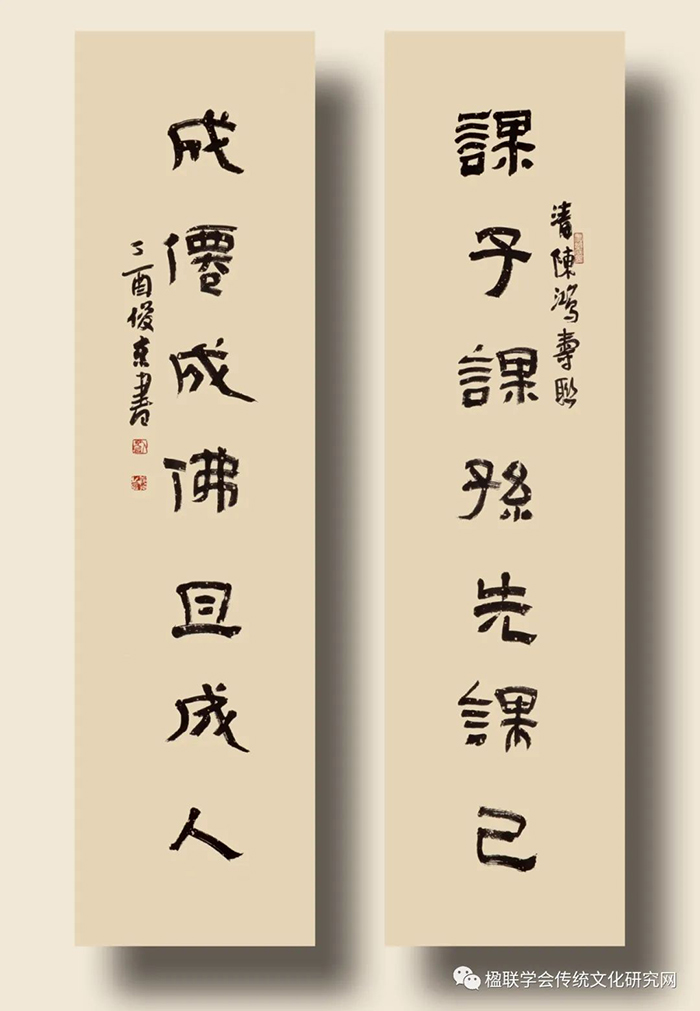 課子課孫先課己
清陳鴻壽聯
成僊成佛且成人
丁酉俊京書
楹联学会传统文化研究网